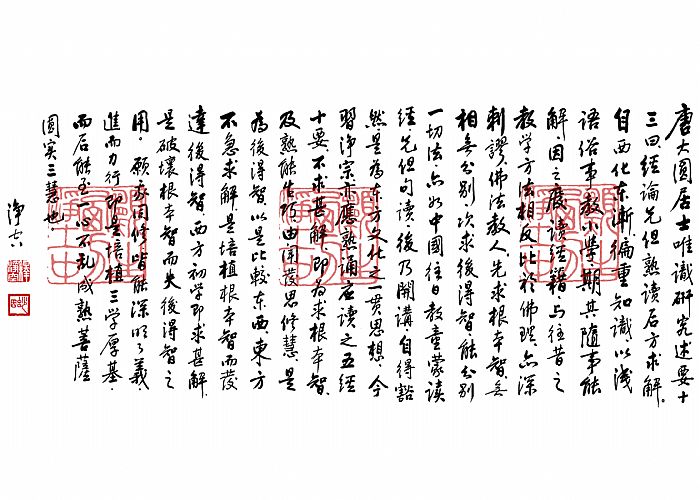 唐大圆居士唯識研究述要十
三曰經論先但熟讀后方求解。
自西化东漸,偏重知識,以淺
語俗事教小學,期其隨事能
解,因之廢讀經籍,与往昔之
教学方法相反,比於佛理,亦深
刺謬,佛法教人,先求根本智,無
相無分别,次求後得智,能分别
一切法,亦如中國往日教童蒙讀
經,先但句讀,後乃開講自得豁
然,是為东方文化之一貫思想,今
習淨宗,亦應熟誦应读之五經
十要,不求甚解,即為求根本智,
及熟能生巧,由聞發思修慧,是
為後得智,以是比較东西,東方
不急求解,是培植根本智而發
達後得智,西方初学即求甚解,
是破壞根本智而失後得智之
用。願我同修皆能深明了義
進而力行,即是培植三学厚基,
而后能至一心不乱,成熟菩薩
圆实三慧也。
淨空